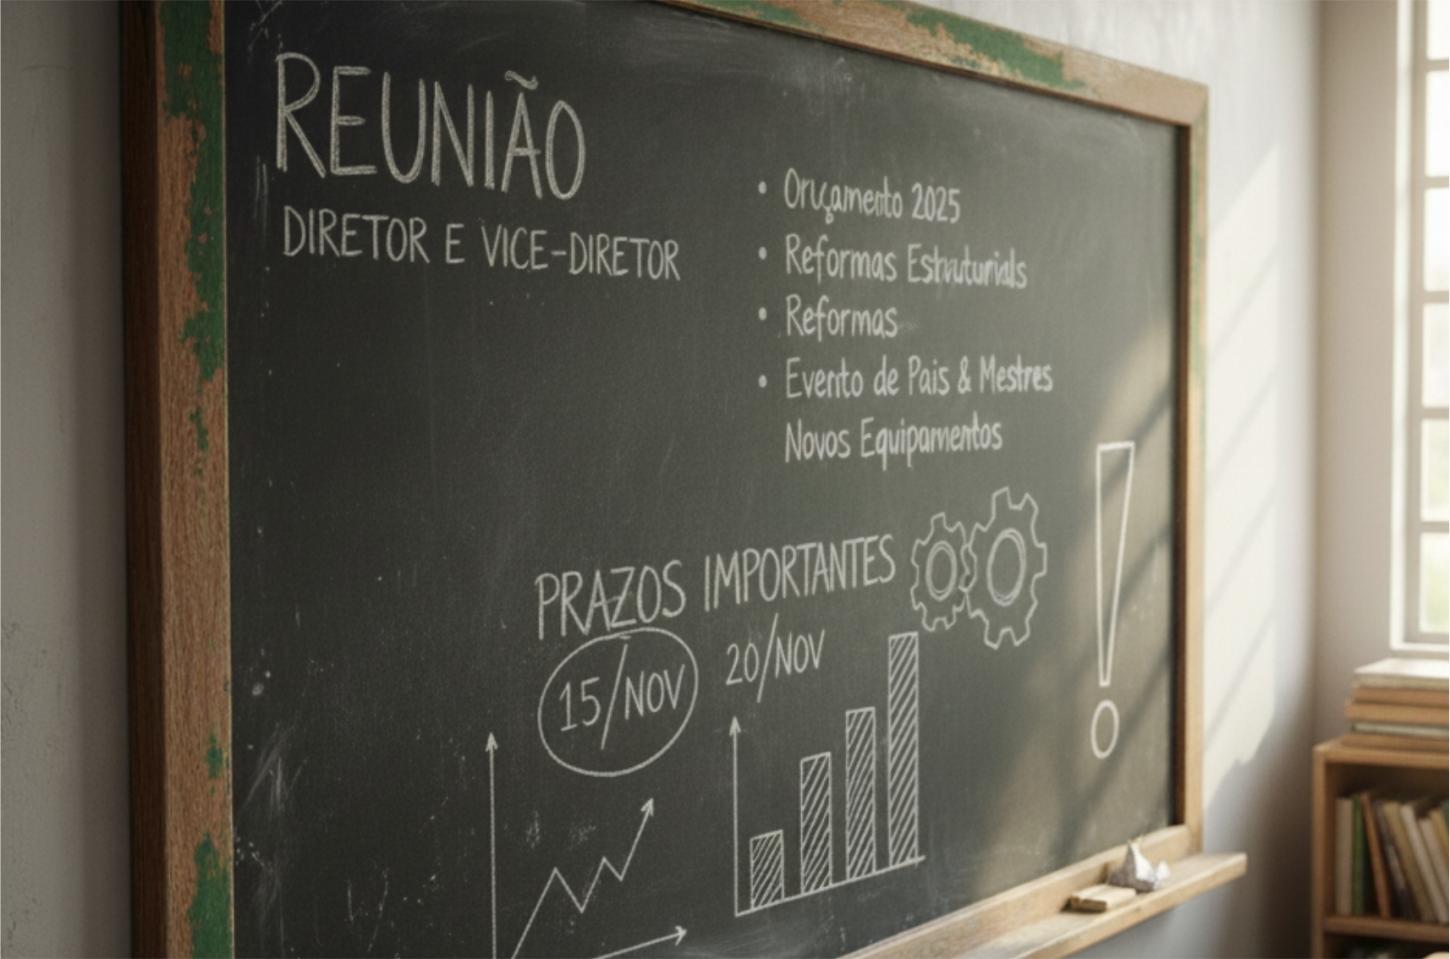 REUNIÃO
DIRETOR E VICE-DIRETOR
• Oruçamento 2025
• Reformas Estruturials
• Reformas
• Evento de Pais & Mestres
Novos Equipamentos
PRAZOS IMPORTANTES
15/NOV 20/NOV